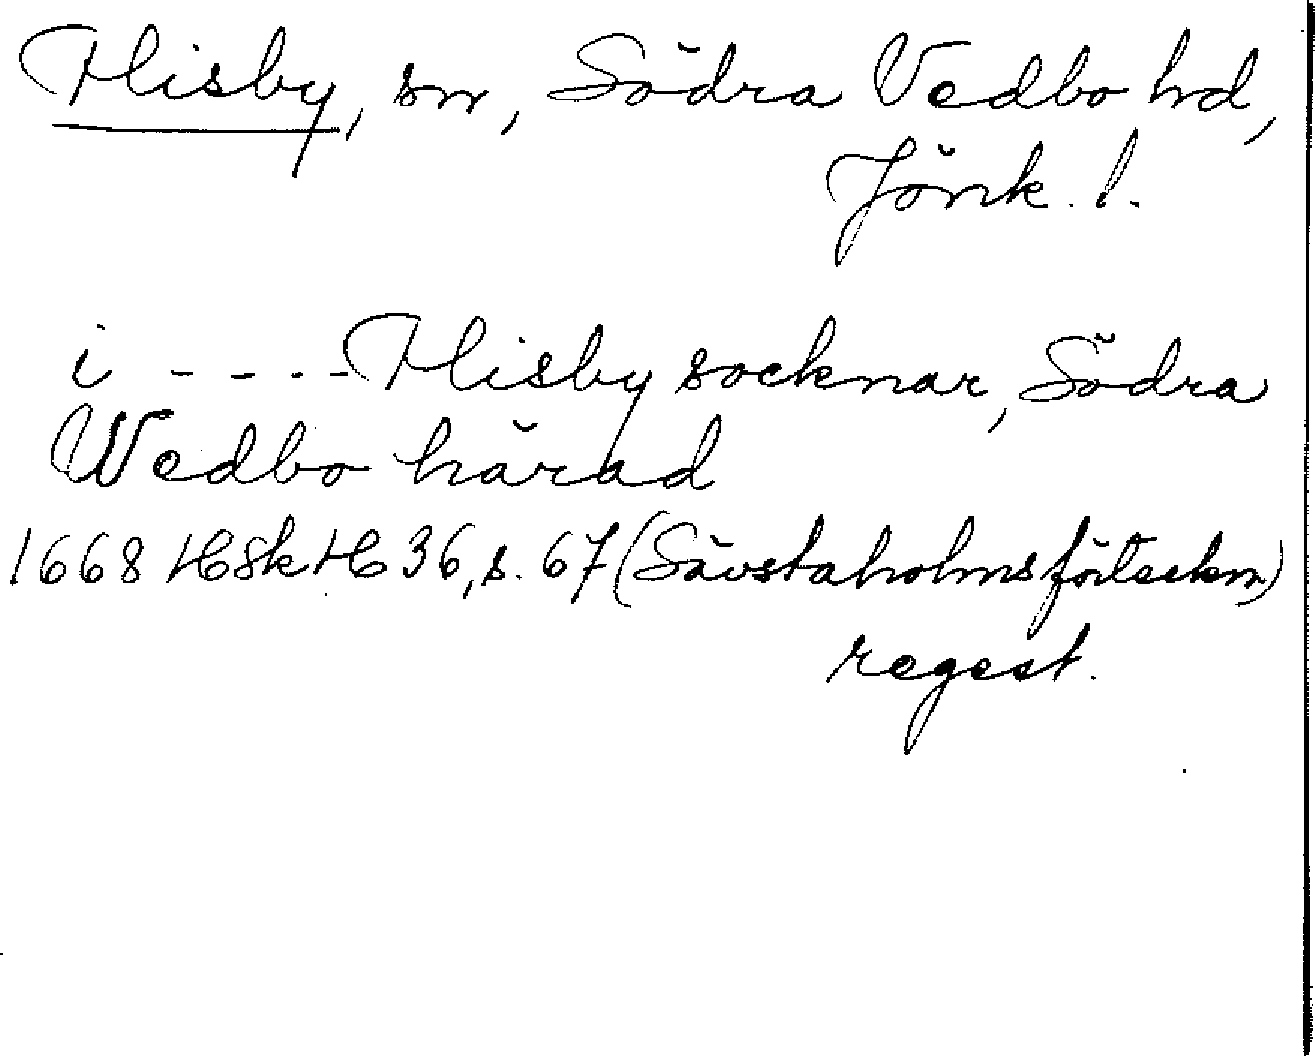 Flisby, sn, Södra Vedbo hd,
Jönk. l.
i - - - - Flisby socknar, Södra
Wedbo härad
1668 HSkH 36, s. 67 (Sävstaholmsförteckn.)
regest.